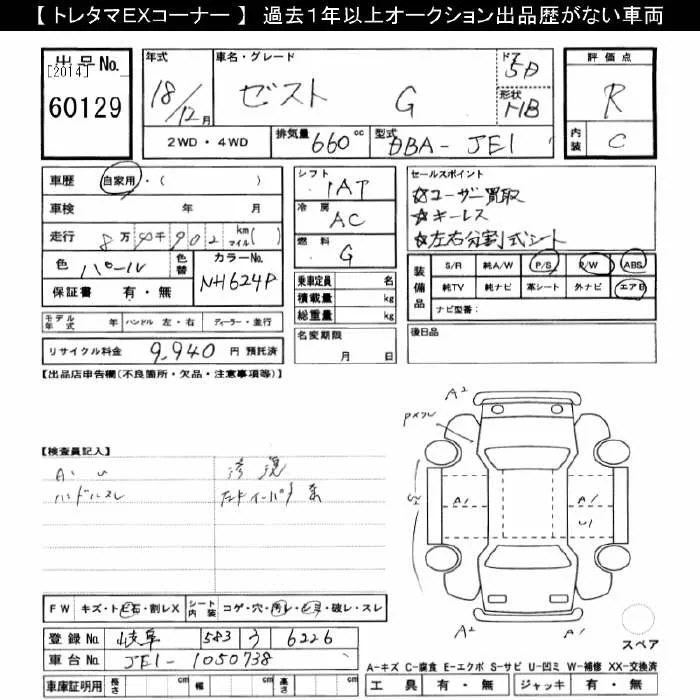 【 トレタマEXコーナー 】 過去1年以上オークション出品歴がない車両
出品No.
[2014]
60129
年式
18/12月
車名・グレード
ゼスト G
ドア
5D
形状
HB
評価点
R
内装
C
2WD・4WD
排気量 660cc
型式 DBA-JE1
車歴 自家用・( )
車検 年 月
走行 8万 千902 km マイル( )
色 パール
色替
カラーNo.
NH624P
保証書 有・無
モデル年式 年 ハンドル 左・右 ディーラー・並行
リサイクル料金 9,940 円 預託済
シフト
IAT
冷房
AC
燃料
G
乗車定員 名
積載量 kg
総重量 kg
名変期限
月 日
セールスポイント
☆ユーザー買取
☆キーレス
☆左右分割式シート
装備品
S/R 純A/W P/S P/W ABS
純TV 純ナビ 革シート 外ナビ エアB
ナビ型番:
後日品
【出品店申告欄(不良箇所・欠品・注意事項等)】
【検査員記入】
A・U
ハンドルスレ
修復
A2
A1
A1
U1
A2
A2
スペア
FW キズ・トビ石・割レX シート内装 コゲ・穴・汚レ・シミ・破レ・スレ
登録No. 岐阜 583 う 6226
車台No. JE1-1050738
車庫証明用 長さ cm 幅 cm 高さ cm
A-キズ C-腐食 E-エクボ S-サビ U-凹ミ W-補修 XX-交換済
工具 有・無 ジャッキ 有・無